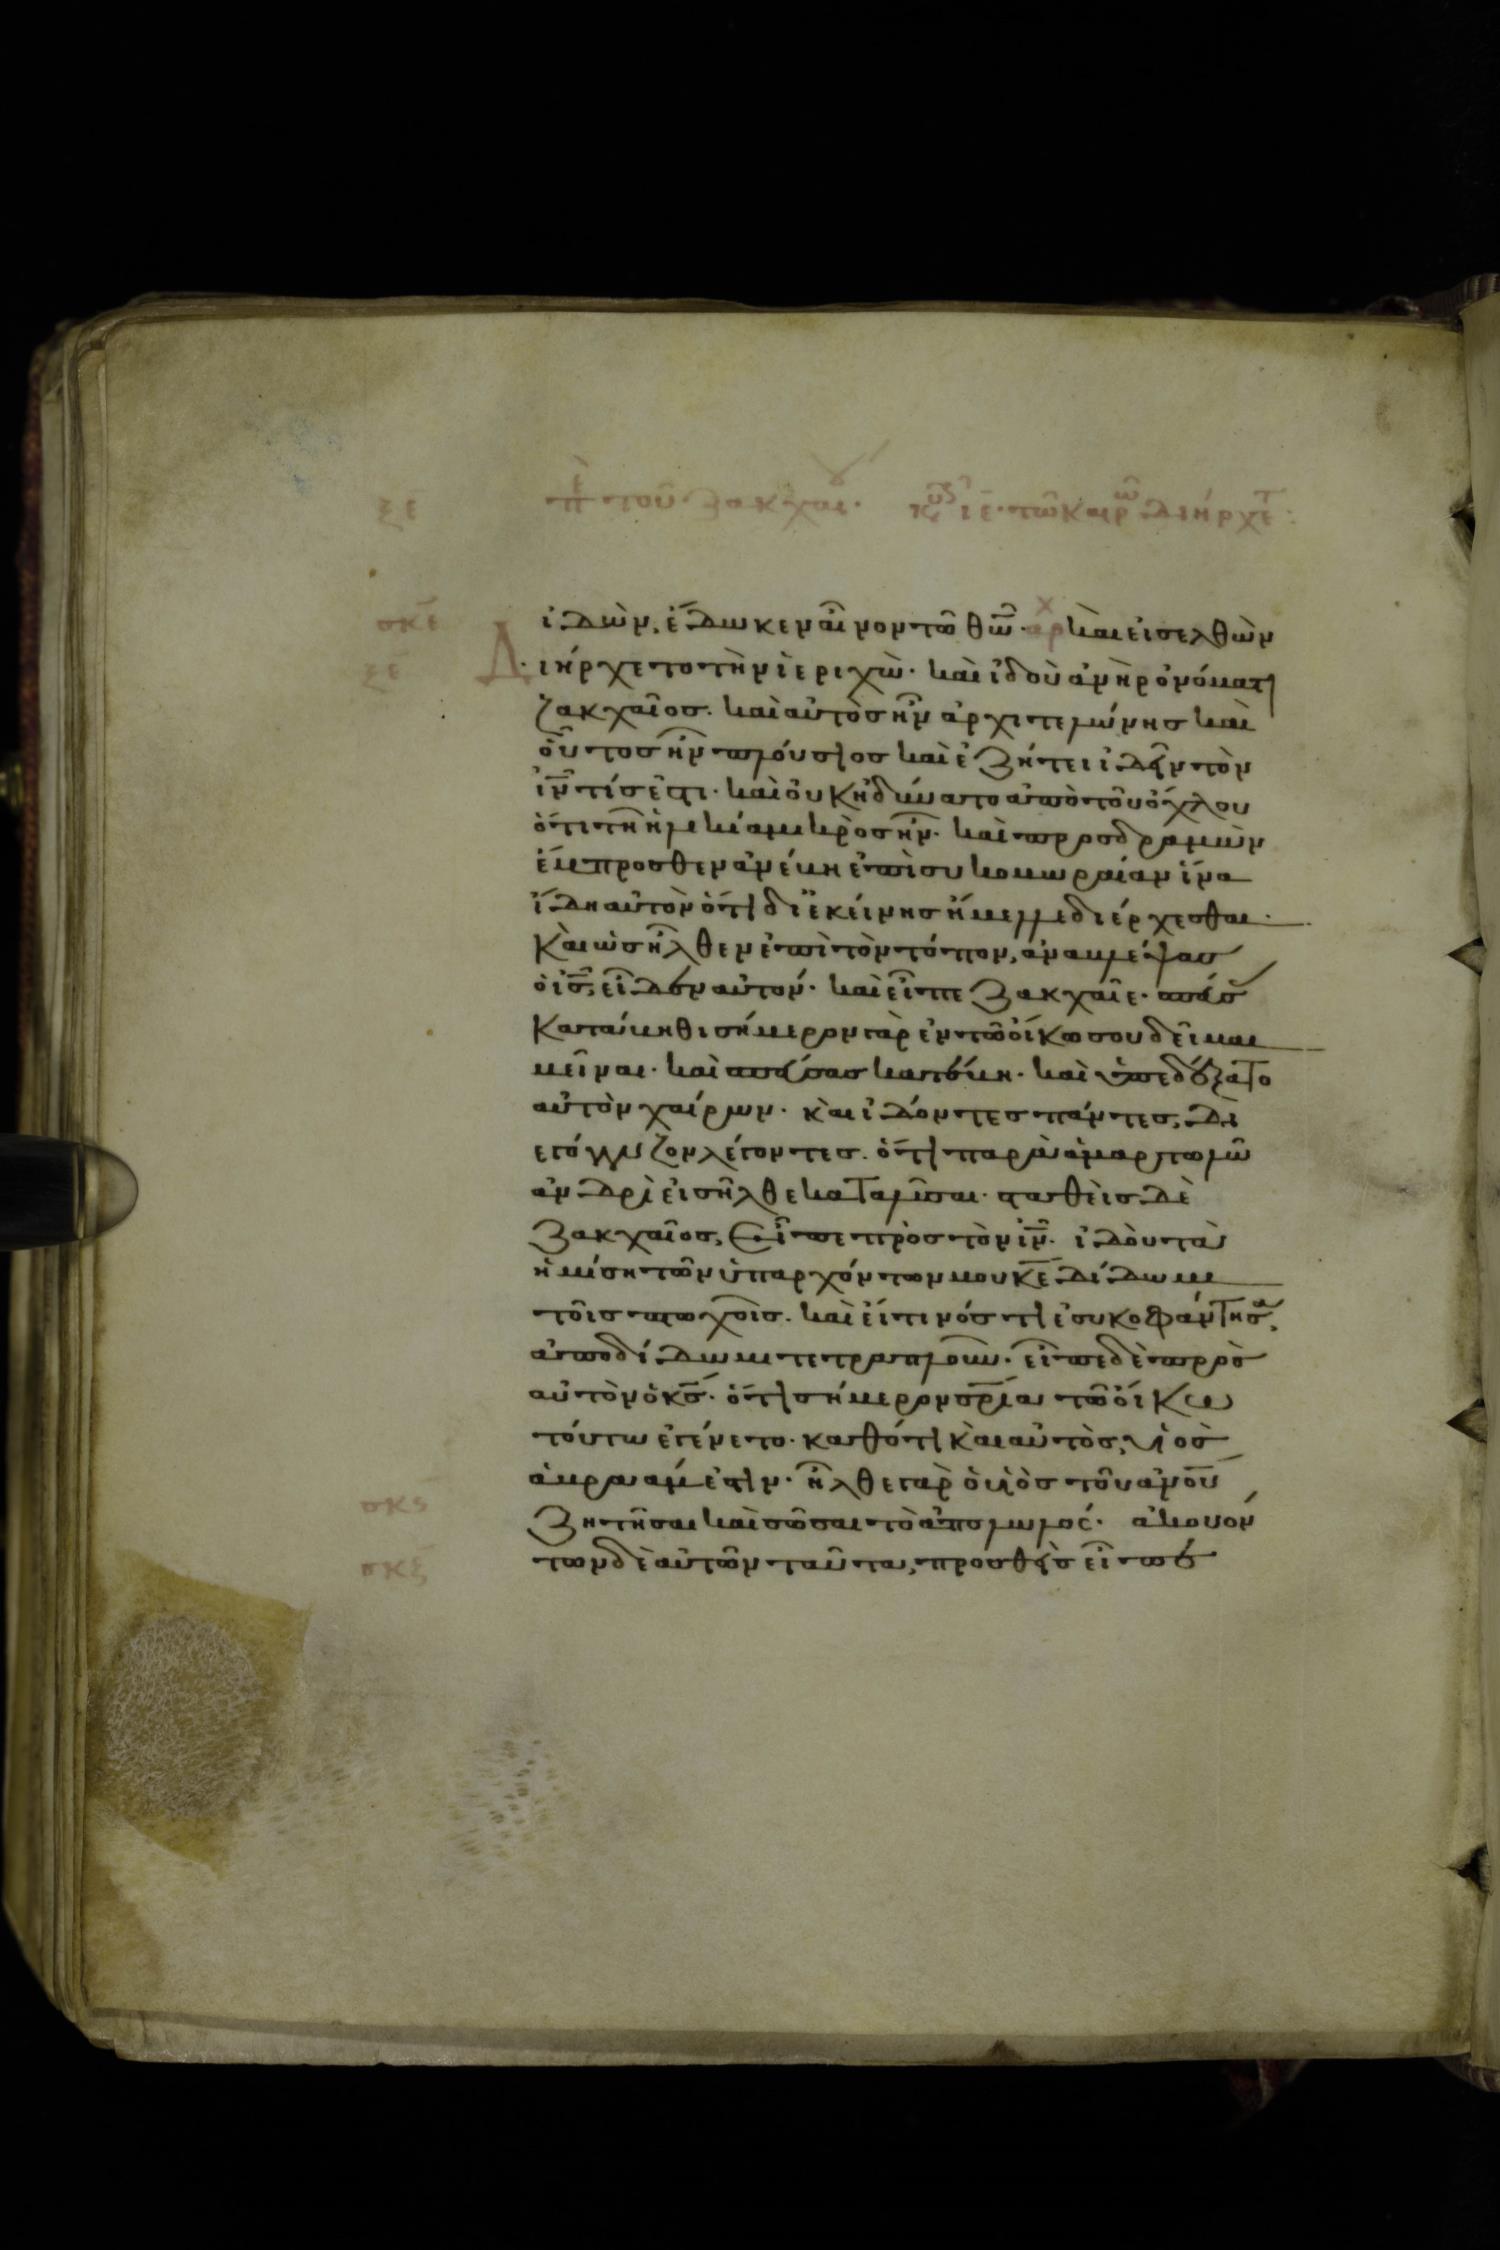 ξε πε του ζακχαι · κυ ιε · τω καιρω διηρχετ
σκε ἰδὼν, ἔδωκεν αἶνον τῶ θῶ · αρχ καὶ εἰσελθὼν
ξε Διήρχετο τὴν ἱεριχὼ · καὶ ἰδοὺ ἀνὴρ ὀνόματι
ζακχαῖος · καὶ αὐτὸς ἦν ἀρχιτελώνης καὶ
οὗτος ἦν πλούσιος καὶ ἐζήτει ἰδεῖν τὸν
ἰν τίς ἐστι · καὶ οὐκ ἠδύνατο ἀπὸ τοῦ ὄχλου
ὅτι τῆ ἡλικία μικρὸς ἦν · καὶ προσδραμὼν
ἔμπροσθεν ἀνέβη ἐπὶ συκομωραίαν ἵνα
ἴδη αὐτὸν ὅτι δι' ἐκείνης ἤμελλε διέρχεσθαι ·
Καὶ ὡς ἦλθεν ἐπὶ τὸν τόπον, ἀναβλέψας
ὁ ις, εἶδεν αὐτόν · καὶ εἶπε ζακχαῖε · σπεύσ
κατάβηθι σήμερον γὰρ ἐν τῶ οἴκω σου δεῖ με
μεῖναι · καὶ σπεύσας κατέβη · καὶ ὑπεδέξατο
αὐτὸν χαίρων · καὶ ἰδόντες πάντες, δι
εγόγγυζον λέγοντες · ὅτι παρὰ ἁμαρτωλῶ
ἀνδρὶ εἰσῆλθε καταλῦσαι · σταθεὶς δὲ
ζακχαῖος, εἶπε πρὸς τὸν ἰν · ἰδοὺ τὰ
ἡμίση τῶν ὑπαρχόντων μου κε δίδωμι
τοῖς πτωχοῖς · καὶ εἴ τινός τι ἐσυκοφάντησα,
ἀποδίδωμι τετραπλοῦν · εἶπε δὲ πρὸ
αὐτὸν ὁ κς · ὅτι σήμερον σρία τῶ οἴκω
τούτω ἐγένετο · καθότι καὶ αὐτὸς, υἱὸς
σκς ἀβραάμ ἐστιν · ἦλθε γὰρ ὁ υἱὸς τοῦ ανου
ζητῆσαι καὶ σῶσαι τὸ ἀπολωλός · ἀκουόν
σκζ των δὲ αὐτῶν ταῦτα, προσθεὶς εἶπε